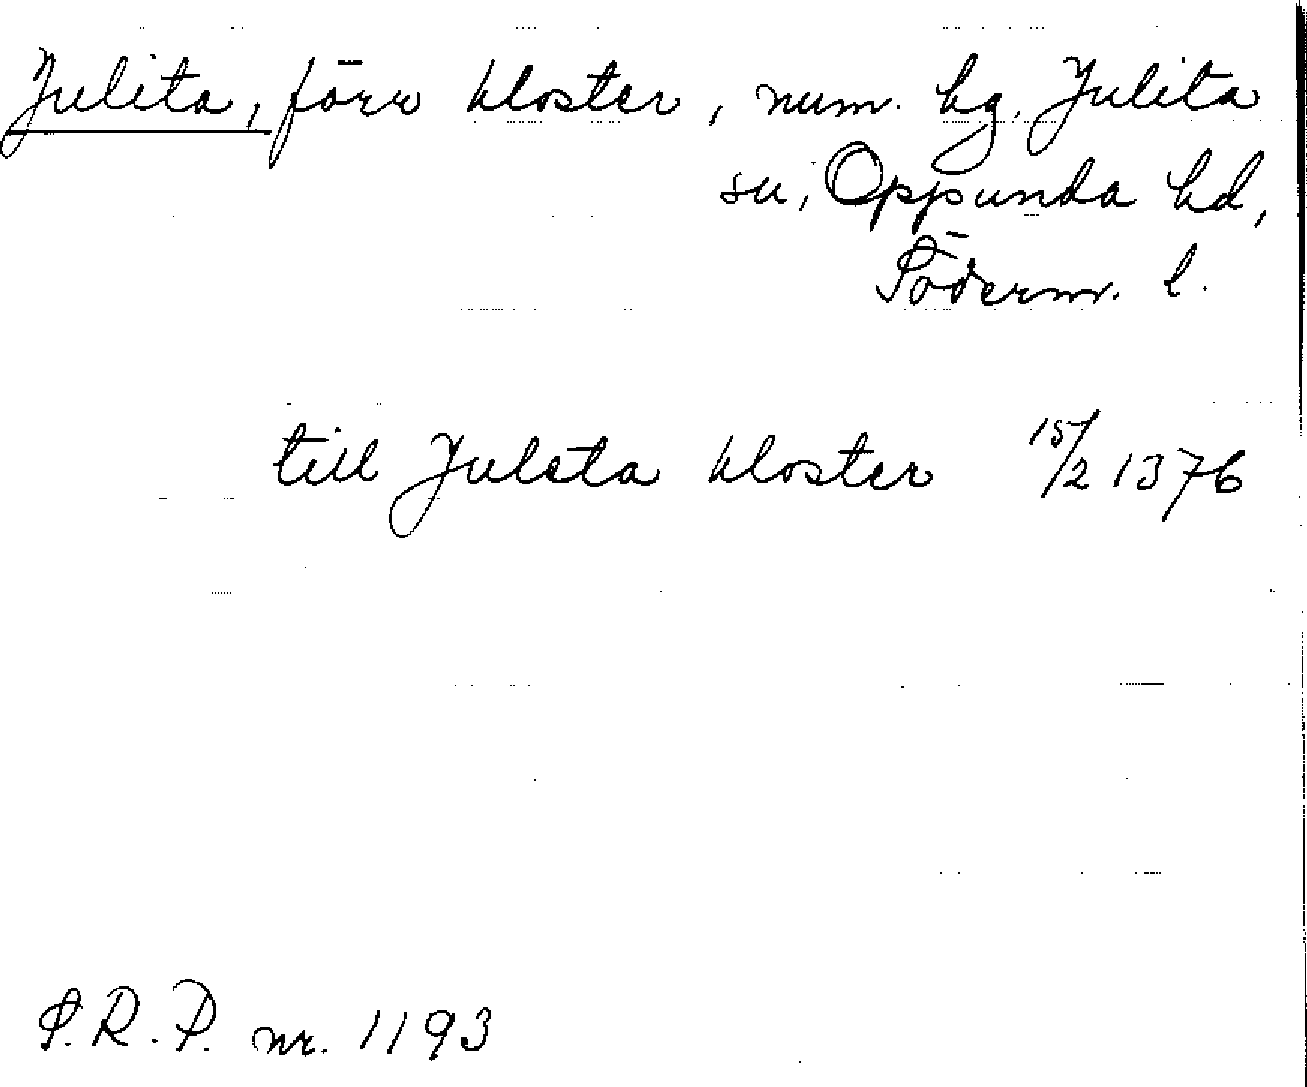 Julita, förr kloster, num. hg. Julita
sn, Oppunda hd,
Söderm. l.
till Juleta kloster 15/2 1376
S.R.P. nr. 1193